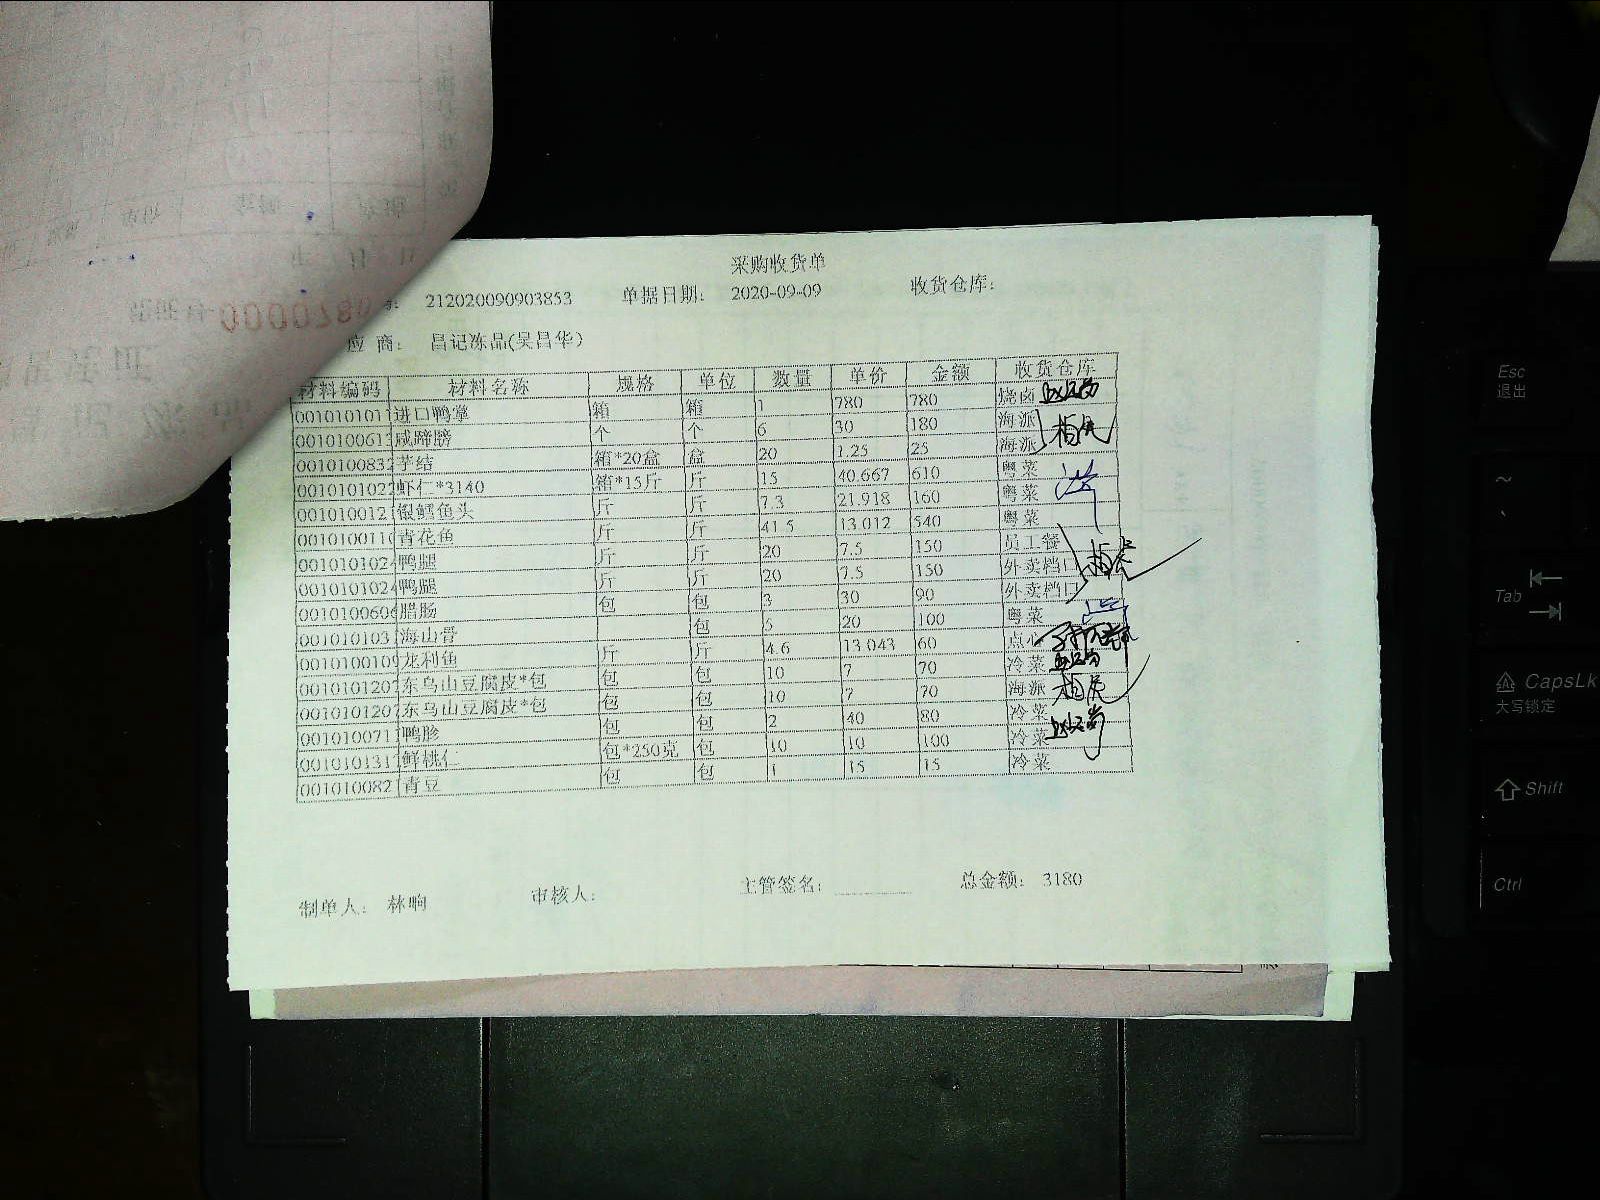 采购收货单
212020090903853 单据日期： 2020-09-09 收货仓库：
应 商： 昌记冻品(吴昌华)
材料编码 材料名称 规格 单位 数量 单价 金额 收货仓库
0010101011 进口鸭掌 箱 箱 1 780 780 烧卤
0010100613 咸蹄髈 个 个 6 30 180 海派
0010100832 芋结 箱*20盒 盒 20 1.25 25 海派
0010101022 虾仁*3140 箱*15斤 斤 15 40.667 610 粤菜
001010012 银鳕鱼头 斤 斤 7.3 21.918 160 粤菜
001010011 青花鱼 斤 斤 41.5 13.012 540 粤菜
001010102 鸭腿 斤 斤 20 7.5 150 员工餐
001010102 鸭腿 斤 斤 20 7.5 150 外卖档口
001010060 腊肠 包 包 3 30 90 外卖档口
001010103 海山骨 包 5 20 100 粤菜
001010010 龙利鱼 斤 斤 4.6 13.043 60 点心
001010120 东乌山豆腐皮*包 包 包 10 7 70 冷菜
001010120 东乌山豆腐皮*包 包 包 10 7 70 海派
001010071 鸭胗 包 包 2 40 80 冷菜
001010131 鲜桃仁 包*250克 包 10 10 100 冷菜
001010082 青豆 包 包 1 15 15 冷菜
制单人： 林响 审核人： 主管签名： 总金额： 3180
Esc
退出
~
Tab
CapsLk
大写锁定
Shift
Ctrl